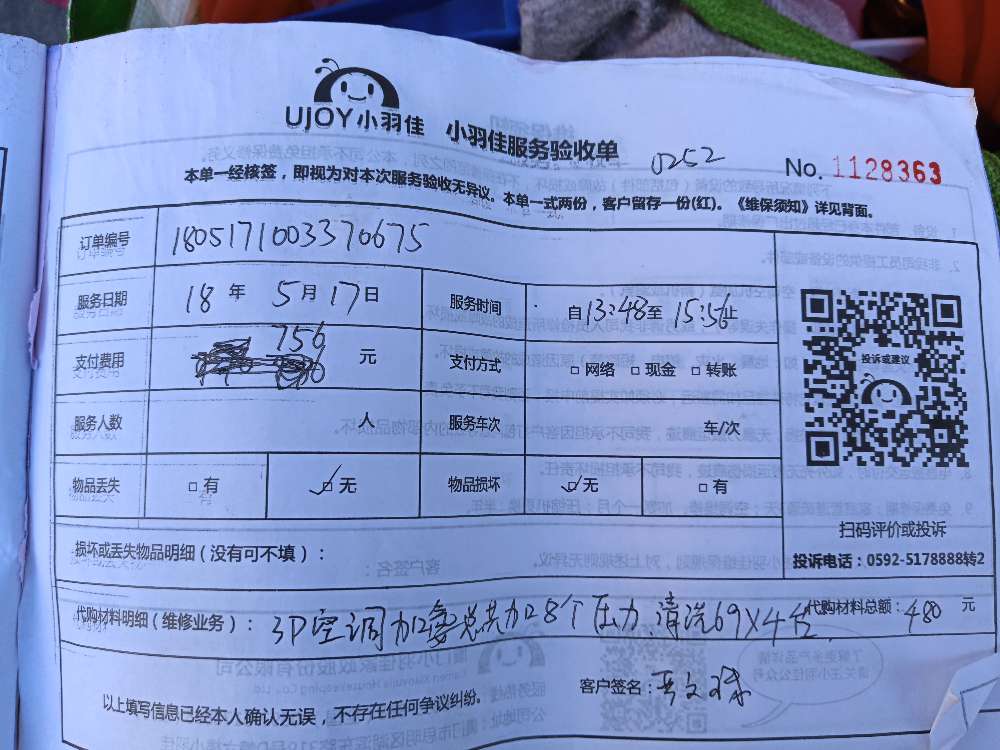 UJOY小羽佳 小羽佳服务验收单 0252 No. 1128363
本单一经核签，即视为对本次服务验收无异议。本单一式两份，客户留存一份(红)。《维保须知》详见背面。
订单编号 1805171003370675
服务日期 18 年 5 月 17 日 服务时间 自13:48至15:56止
支付费用 756 元 支付方式 □ 网络 □ 现金 □ 转账
投诉或建议
服务人数 人 服务车次 车/次
物品丢失 □ 有 ☑ 无 物品损坏 ☑ 无 □ 有
扫码评价或投诉
损坏或丢失物品明细（没有可不填）：
投诉电话：0592-5178888转2
代购材料明细（维修业务）： 3P空调加雪总共加8个压力、清洗69X4台 代购材料总额： 480 元
以上填写信息已经本人确认无误，不存在任何争议纠纷。 客户签名：